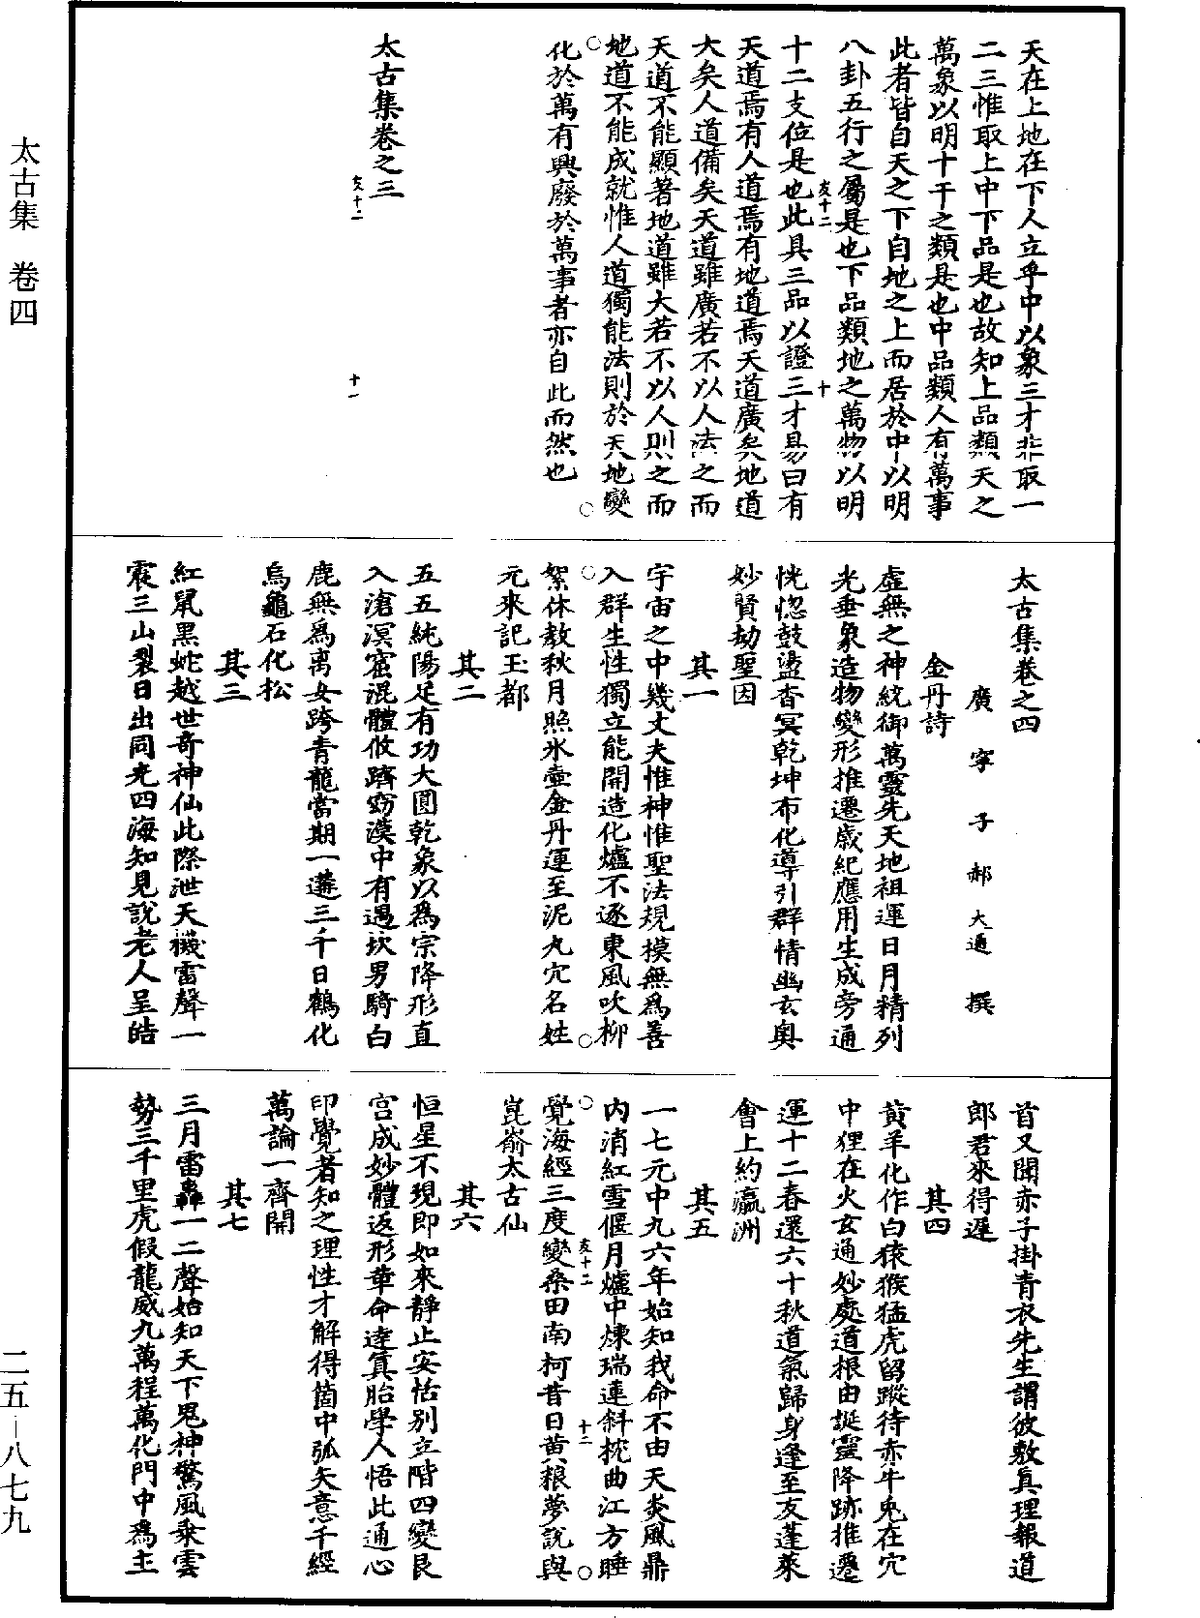 天在上地在下人立乎中以象三才非取一
二三惟取上中下品是也故知上品類天之
萬象以明十干之類是也中品類人有萬事
此者皆自天之下自地之上而居於中以明
八卦五行之屬是也下品類地之萬物以明
友十二
十
十二支位是也此具三品以證三才易曰有
天道焉有人道焉有地道焉天道廣矣地道
大矣人道備矣天道雖廣若不以人法之而
天道不能顯著地道雖大若不以人則之而
地道不能成就惟人道獨能法則於天地變
化於萬有興廢於萬事者亦自此而然也
太古集卷之三
友十二
十一
太古集卷之四
廣寧子郝大通撰
金丹詩
虛無之神統御萬靈先天地祖運日月精列
光垂象造物變形推遷歲紀應用生成旁通
恍惚鼓盪杳冥乾坤布化導引群情幽玄奧
妙賢劫聖因
其一
宇宙之中幾丈夫惟神惟聖法規摸無為善
入群生性獨立能開造化爐不逐東風吹柳
絮休教秋月照氷壺金丹運至泥丸穴名姓
元來記玉都
其二
五五純陽足有功大圓乾象以為宗降形直
入滄溟窟混體攸躋窈漠中有遇坎男騎白
鹿無為离女跨青龍當期一遘三千日鶴化
烏龜石化松
其三
紅鼠黑虵越世奇神仙此際泄天機雷聲一
震三山裂日出同光四海知見說老人呈皓
首又聞赤子掛青衣先生謂彼敷真理報道
郎君來得遲
其四
黃羊化作白猿猴猛虎留蹤待赤牛兎在穴
中狸在火玄通妙處道根由誕靈降跡推遷
運十二春還六十秋道氣歸身逢至友蓬萊
會上約瀛洲
其五
一七元中九六年始知我命不由天炎風鼎
內消紅雪偃月爐中煉瑞蓮斜枕曲江方睡
友十二
十二
覺海經三度變桑田南柯昔日黃粮夢說與
崑崙太古仙
其六
恒星不現即如來靜止安怙別立階四變艮
宮成妙體返形革命達真胎學人悟此通心
印覺者知之理性才解得箇中弧矢意千經
萬論一齊開
其七
三月雷轟一二聲始知天下鬼神驚風乘雲
勢三千里虎假龍威九萬程萬化門中為主
太古集 卷四
二五—八七九